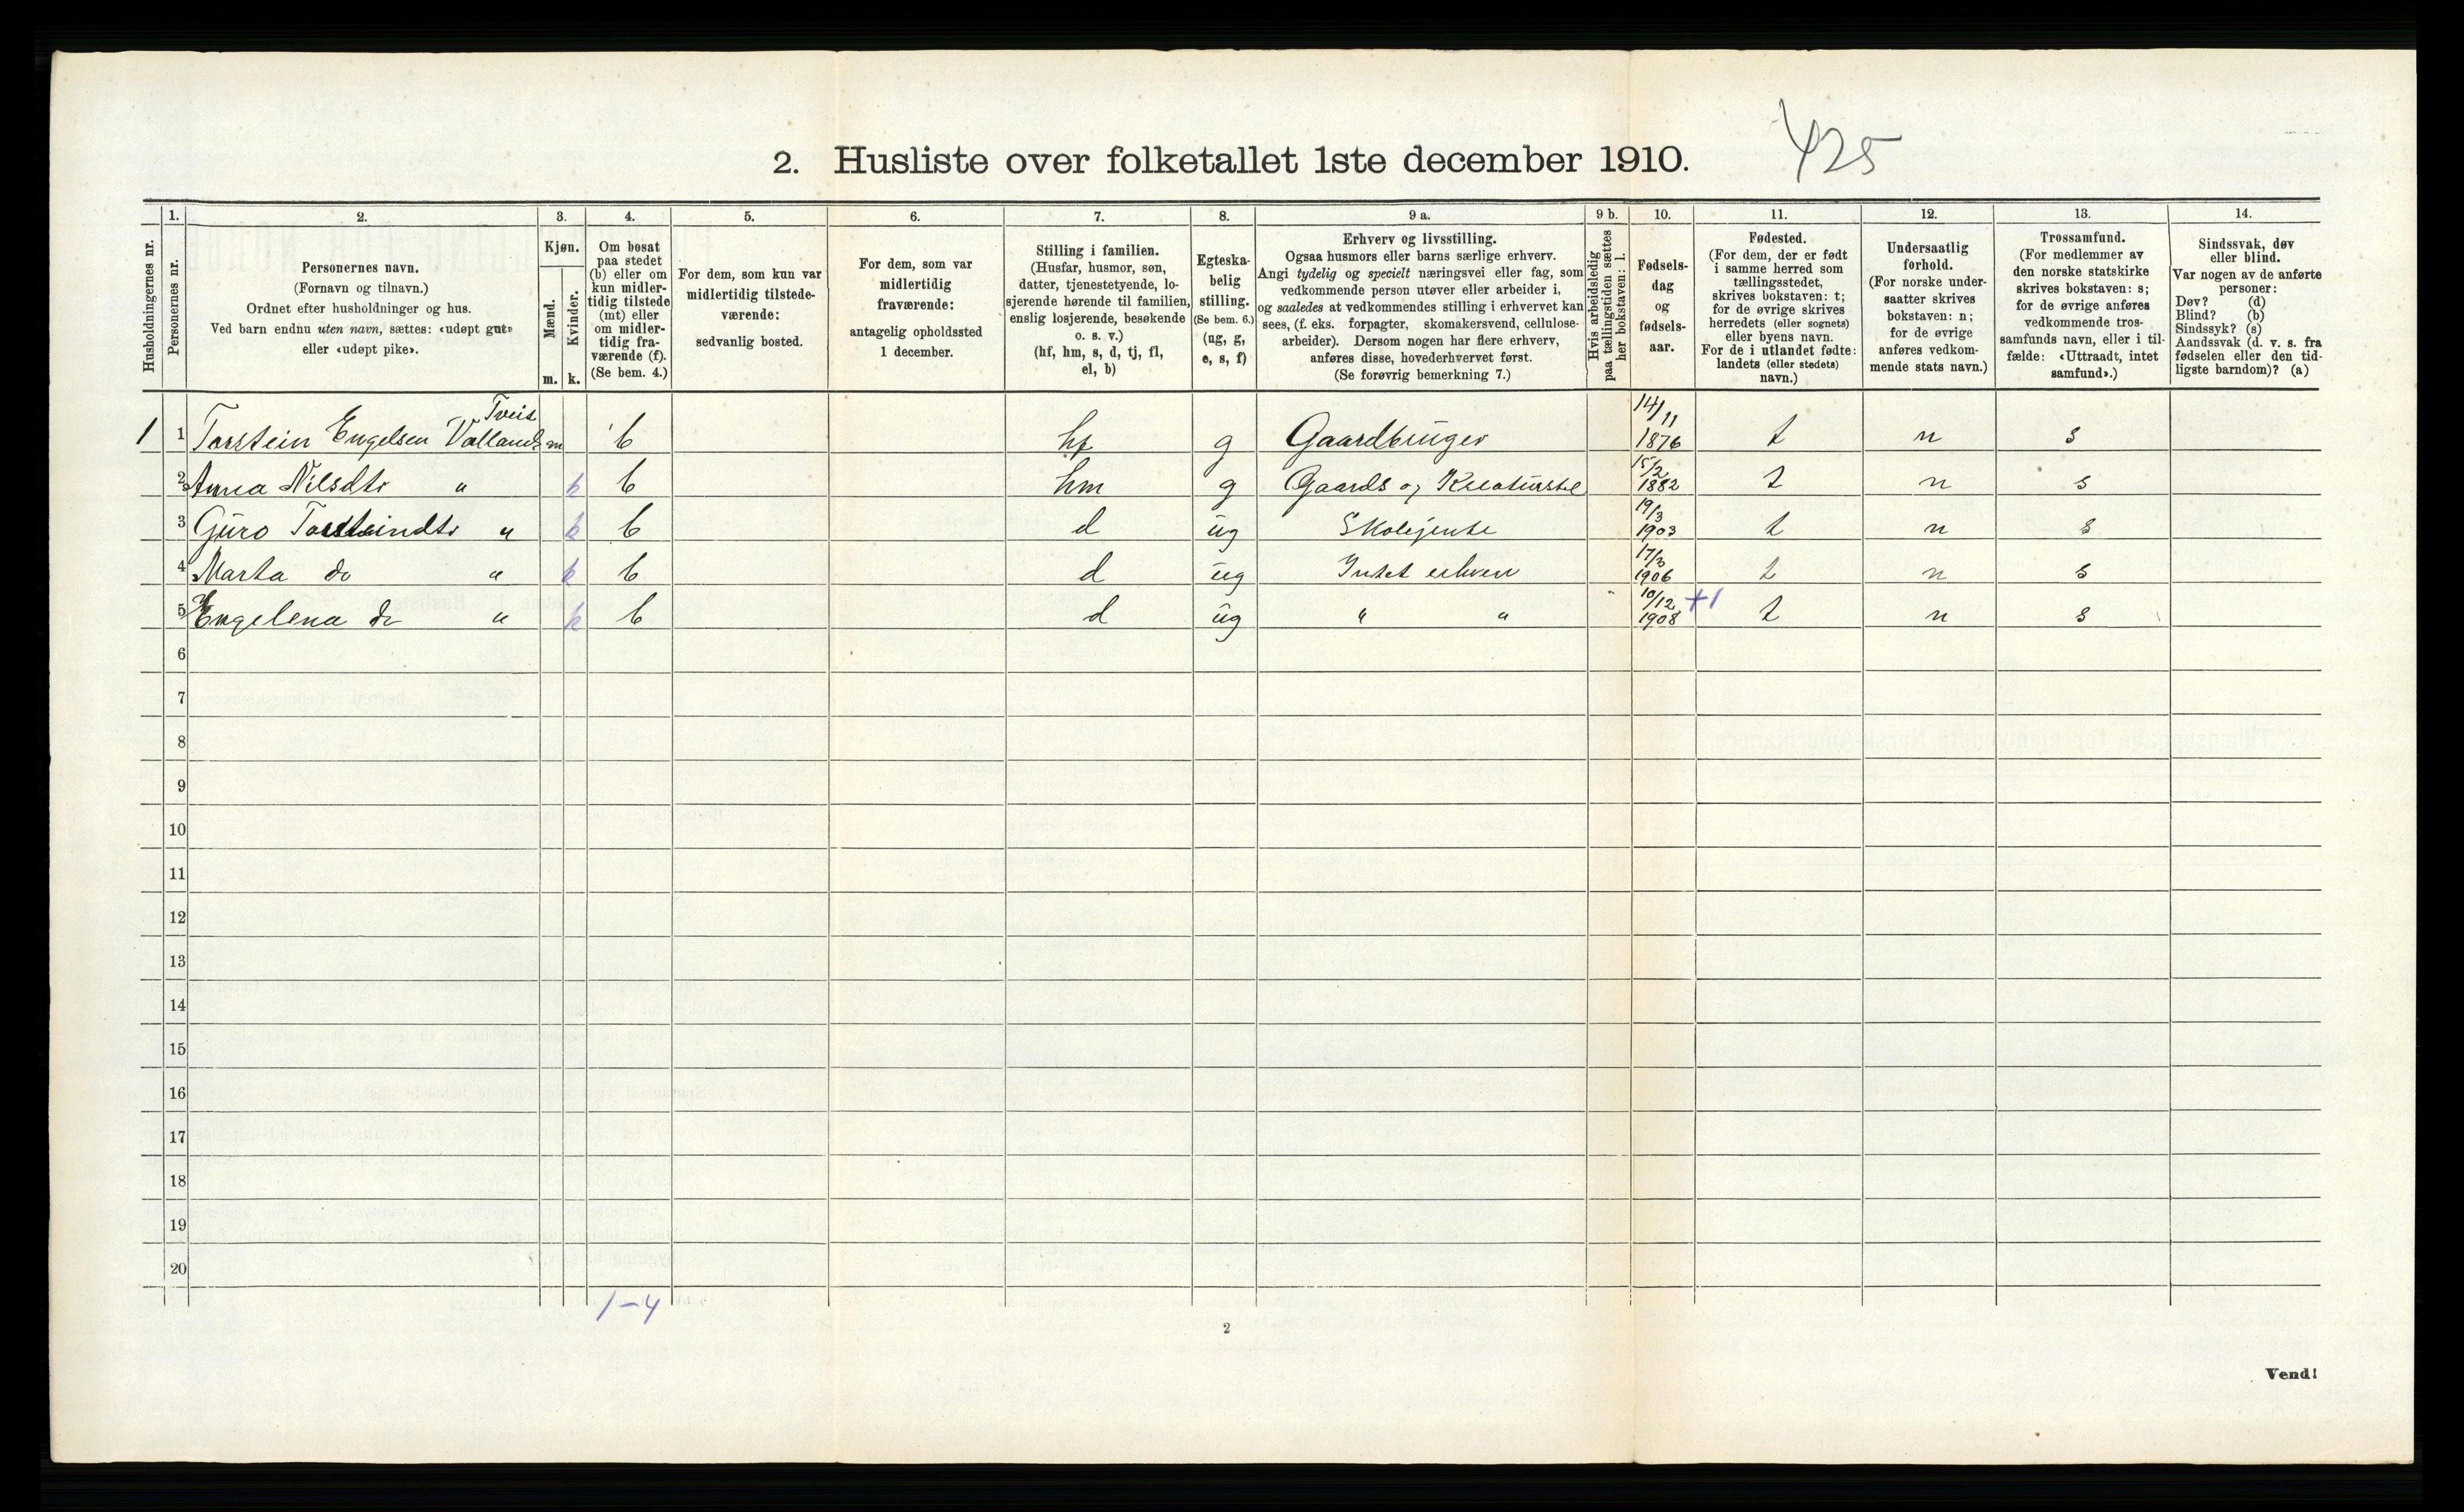 2. Husliste over folketallet 1ste december 1910.
425
Husholdningernes nr.
1.
Personernes nr.
2.
Personernes navn.
(Fornavn og tilnavn.)
Ordnet efter husholdninger og hus.
Ved barn endnu uten navn, sættes: «udøpt gut»
eller «udøpt pike».
3.
Kjøn.
Mænd.
Kvinder.
m. k.
4.
Om bosat
paa stedet
(b) eller om
kun midler-
tidig tilstede
(mt) eller
om midler-
tidig fra-
værende (f).
(Se bem. 4.)
5.
For dem, som kun var
midlertidig tilstede-
værende:
sedvanlig bosted.
6.
For dem, som var
midlertidig
fraværende:
antagelig opholdssted
1 december.
7.
Stilling i familien.
(Husfar, husmor, søn,
datter, tjenestetyende, lo-
sjerende hørende til familien,
enslig losjerende, besøkende
o. s. v.)
(hf, hm, s, d, tj, fl,
el, b)
8.
Egteska-
belig
stilling.
(Se bem. 6.)
(ug, g,
e, s, f)
9 a.
Erhverv og livsstilling.
Ogsaa husmors eller barns særlige erhverv.
Angi tydelig og specielt næringsvei eller fag, som
vedkommende person utøver eller arbeider i,
og saaledes at vedkommendes stilling i erhvervet kan
sees, (f. eks. forpagter, skomakersvend, cellulose-
arbeider). Dersom nogen har flere erhverv,
anføres disse, hovederhvervet først.
(Se forøvrig bemerkning 7.)
9 b.
Hvis arbeidsledig
paa tællingstiden sættes
her bokstaven: l.
10.
Fødsels-
dag
og
fødsels-
aar.
11.
Fødested.
(For dem, der er født
i samme herred som
tællingsstedet,
skrives bokstaven: t;
for de øvrige skrives
herredets (eller sognets)
eller byens navn.
For de i utlandet fødte:
landets (eller stedets)
navn.)
12.
Undersaatlig
forhold.
(For norske under-
saatter skrives
bokstaven: n;
for de øvrige
anføres vedkom-
mende stats navn.)
13.
Trossamfund.
(For medlemmer av
den norske statskirke
skrives bokstaven: s;
for de øvrige anføres
vedkommende tros-
samfunds navn, eller i til-
fælde: «Uttraadt, intet
samfund».)
14.
Sindssvak, døv
eller blind.
Var nogen av de anførte
personer:
Døv? (d)
Blind? (b)
Sindssyk? (s)
Aandssvak (d. v. s. fra
fødselen eller den tid-
ligste barndom)? (a)
Tveit
1 1 Torstein Engelsen Valland m b hf g Gaardbruger 14/11 1876 t n s
2 Anna Nilsdtr " k b hm g Gaards og Kreaturstel 15/2 1882 t n s
3 Guro Torsteindtr " k b d ug Skolejente 19/3 1903 t n s
4 Marta do " k b d ug Intet erhverv 17/3 1906 t n s
5 Engelena do " k b d ug " " 10/12 1908 +1 t n s
6
7
8
9
10
11
12
13
14
15
16
17
18
19
20
1-4
2
Vend!